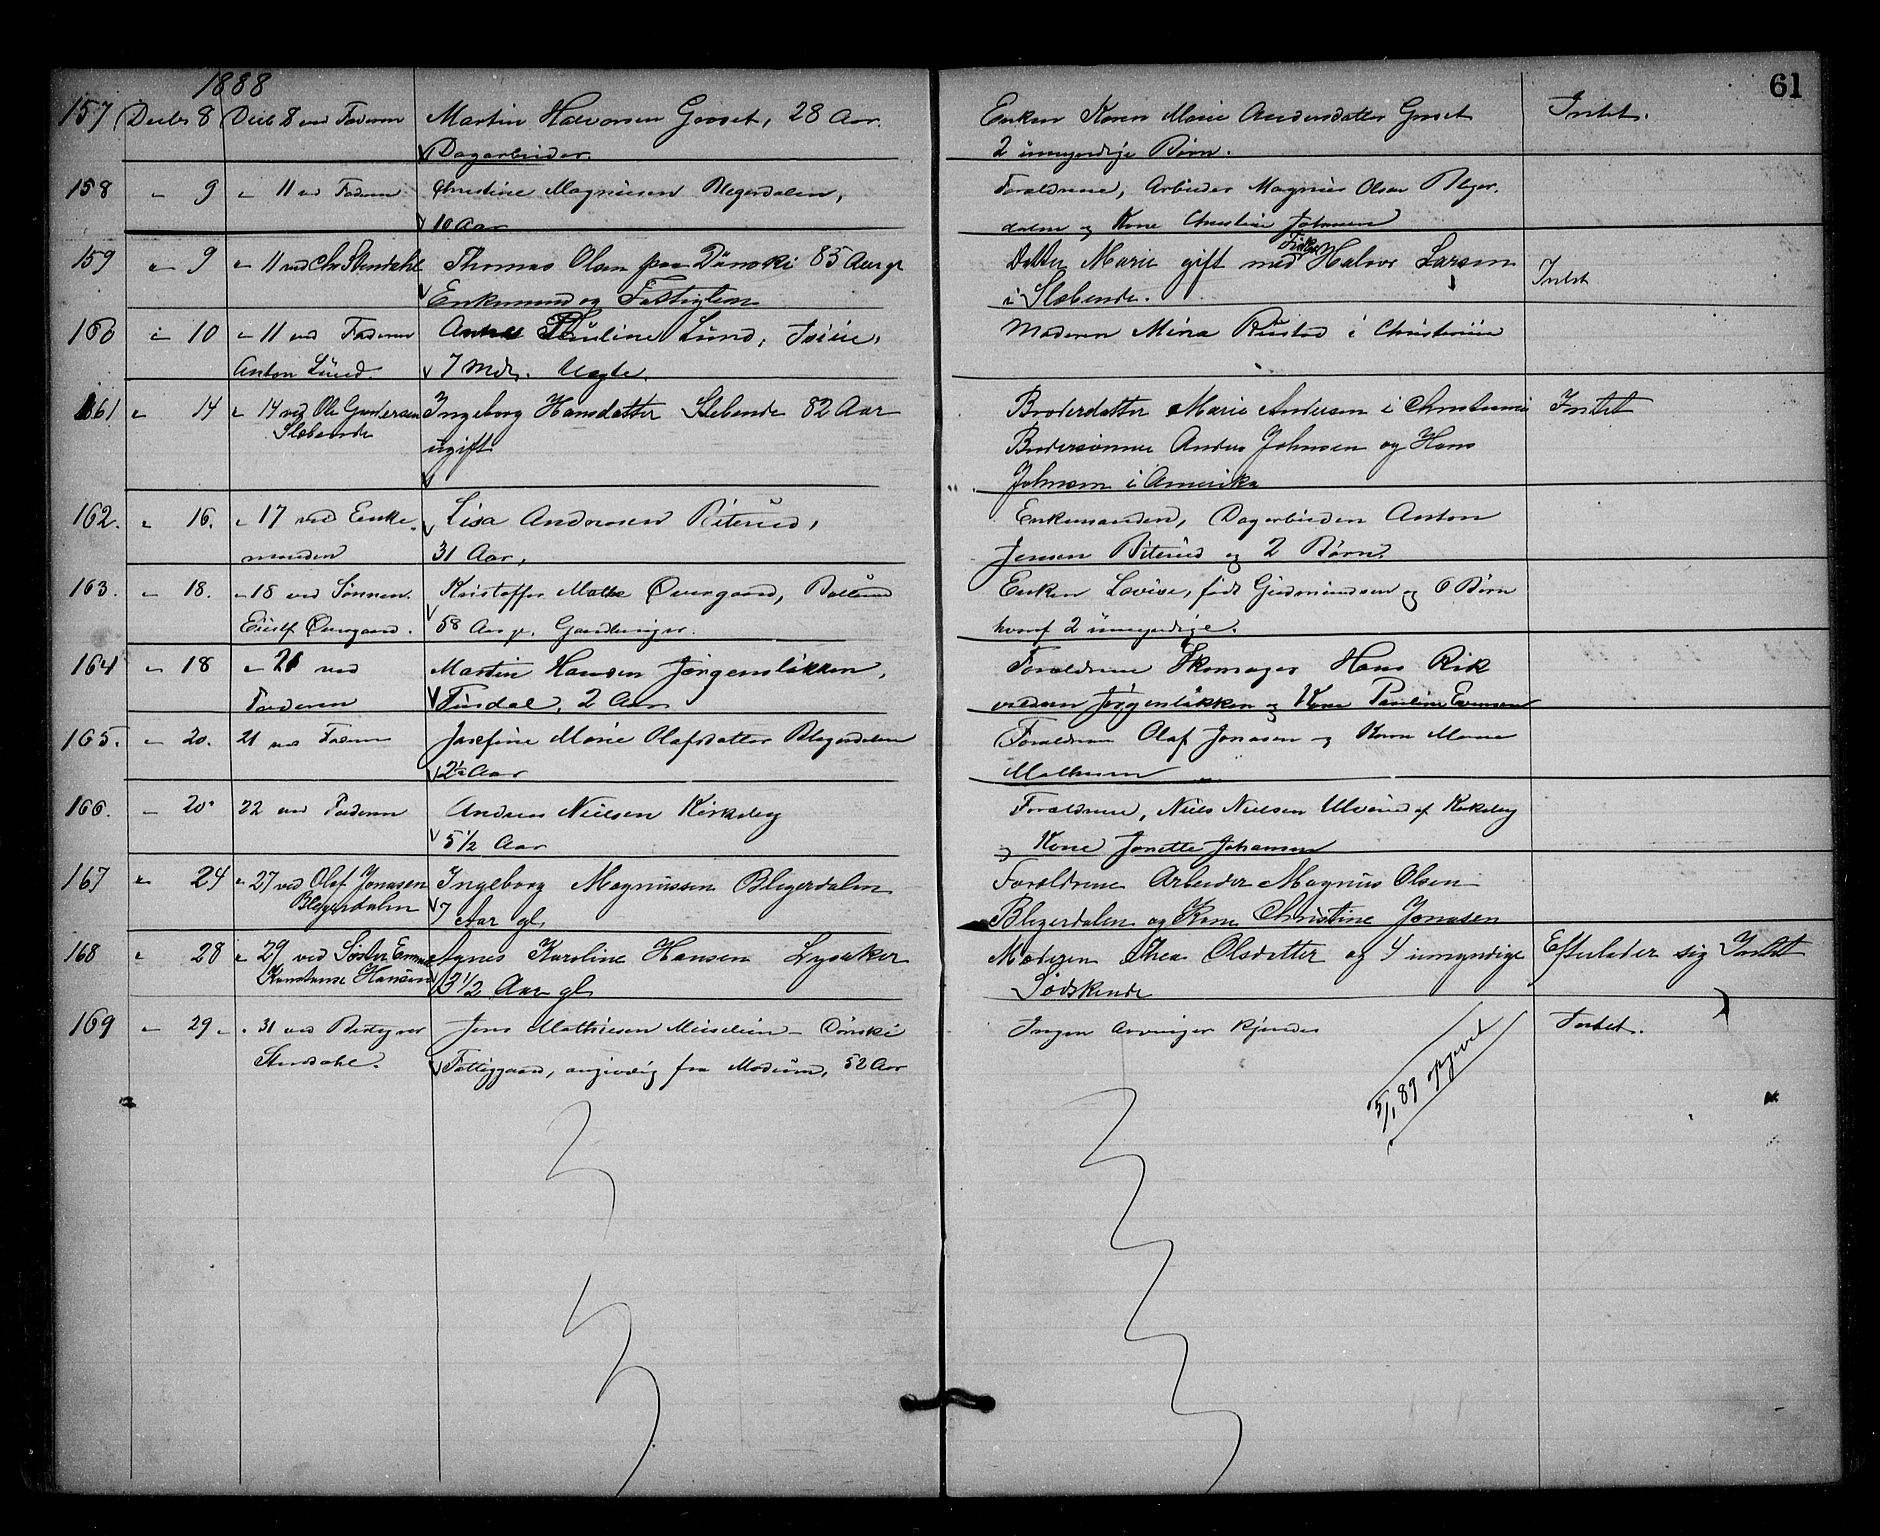 61
1888
157 Decbr 8 Decb 8 ved Faderen Martin Halvorsen Grøset, 28 Aar. Enken Karen Marie Andersdatter Grøset Intet.
Dagarbeider. 2 umyndige Børn.
158 " 9 " 11 ved Faderen Christine Magnusen Blegerdalen, Forældrene, Arbeider Magnus Olsen Bleger-
10 Aar dalen og Kone Christine Johnsen
159 " 9 " 11 ved Chr Stendahl Thomas Olsen paa Dønski 85 Aar gl Datter Marie gift med Halvor Larsen
Enkemand og Fattiglem i Slæbende. Intet
160 " 10 " 11 ved Faderen Pauline Lund, Moderen Mina Rustad i Christiania
Anton Lund. 7 Mdr. Uægte.
161 " 14 " 14 ved Ole Gundersen Ingeborg Hansdatter Slebende 82 Aar Broderdatter Marie Andersen i Christiania Intet
Slæbende ugift Brodersønner Anders Johnsen og Hans
Johnsen i Amerika
162. " 16. " 17 ved Enke- Lisa Andersen Biterud, Enkemanden, Dagarbeider Anton
manden 31 Aar, Jensen Biterud og 2 Børn.
163. " 18. " 18 ved Sønnen Kristoffer Overgaard, Enken Lovise, født Gudmundsen og 6 Børn
Overgaard. 58 Aar gl. hvoraf 2 umyndige.
164 " 18 " 21 ved Martin Hansen Jørgensløkken, Forældrene Skomager Hans Rik
Faderen 2 Aar Jørgensløkken og Kone Pauline Evensen
165. " 20. 21 ved Faderen Josefine Marie Olafsdatter Blegerdalen Forældrene Olaf Jonasen og Kone Maren
2½ Aar
166. " 20. 22 ved Faderen Andreas Nielsen Kirkeby Forældrene, Niels Nielsen af Kirkeby
5 1/2 Aar og Kone Jonette Johansen
167 " 24 " 27 ved Olaf Jonasen Ingeborg Magnussen Blegerdalen Forældrene Arbeider Magnus Olsen
Blegerdalen 7 Aar gl. Blegerdalen og Kone Christine Jonasen
168 " 28 " 29 ved Søster Emma Agnes Karoline Hansen Lysaker Moderen Thea Olsdatter og 4 umyndige Efterlader sig Intet
Konstanse Hansen 3 1/2 Aar gl Sødskende
169 " 29 " " 31 ved Bestyrer Jens Mathiesen Dønski Ingen Arvinger kjendes Intet.
Stendahl. Fattiggaard, angivelig fra Modum, 52 Aar
5/1 89 opgivet